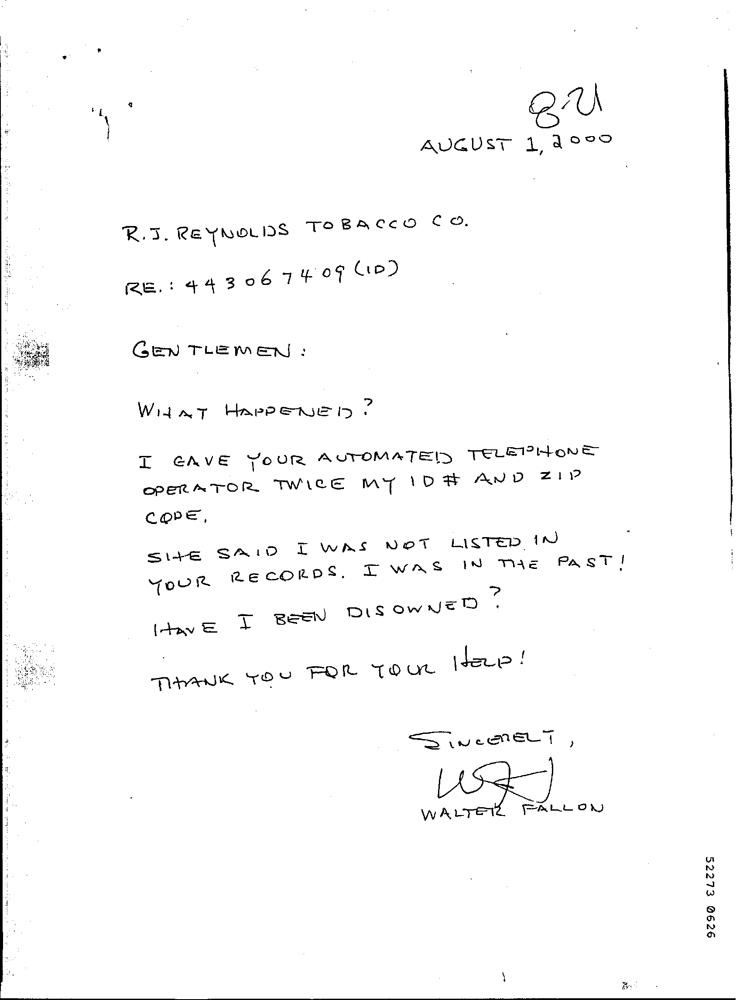 8-21
AUGUST 1, 2000
R.J. REYNOLDS TOBACCO CO.
RE.: 443067409 (ID)
GENTLEMEN:
WHAT HAPPENED?
I GAVE YOUR AUTOMATED TELEPHONE
OPERATOR TWICE MY ID# AND ZIP
CODE.
SHE SAID I WAS NOT LISTED IN
YOUR RECORDS. I WAS IN THE PAST!
HAVE I BEEN DISOWNED?
THANK YOU FOR YOUR HELP!
SINCERELY,
WALTER FALLON
52273 0626